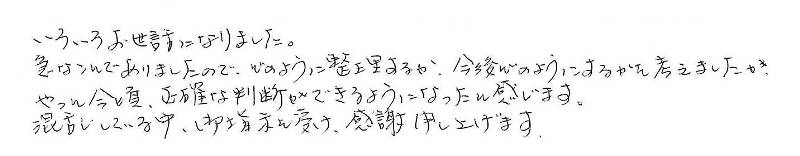 いろいろお世話になりました。
急なんでありましたので、どのように整理するか、今後どのようにするかを考えましたが、
やっと今頃、正確な判断ができるようになったと感じます。
混乱している中、御指示を受け、感謝申し上げます。